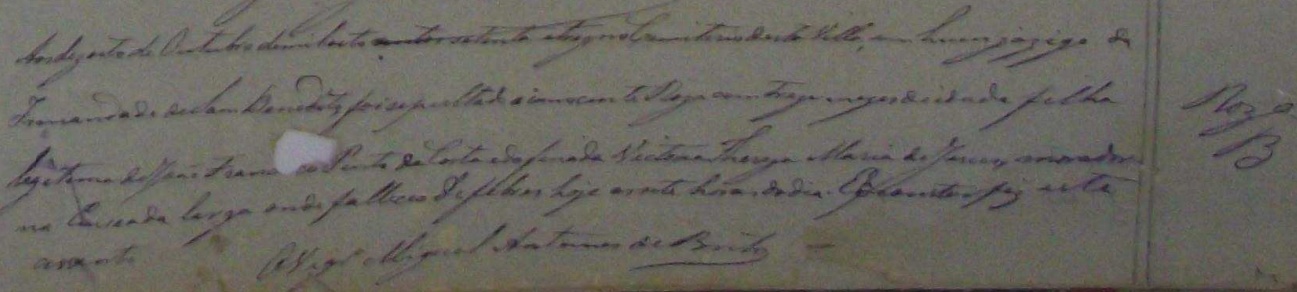 Aos dezoito de Outubro de mil oito centos setenta e tres no Cemiterio desta Villa, em hum jazigo da
Irmandade de Sam Benedito, foi sepultada a innocente Roza com treze mezes de idade filha
legitima de João Fran co Pinto da Costa e da finada Victoria Thereza Maria de Jesus, morador
na Enseada larga onde falleceo de febres hoje as sete horas do dia. E p. constar fiz este
assento O Vigr.º Miguel Antunes de Brito
Roza
B